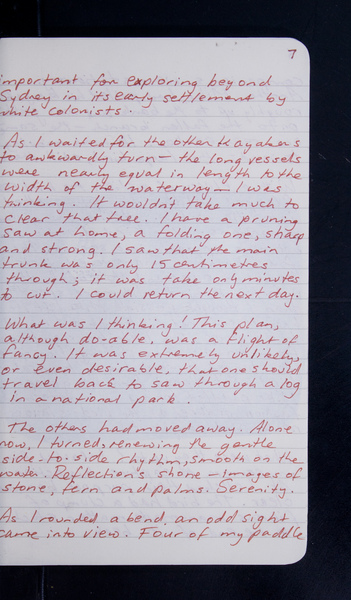 7
important for exploring beyond
Sydney in its early settlement by
white colonists.
As I waited for the other kayakers
to awkwardly turn – the long vessels
were nearly equal in length to the
width of the waterway – I was
thinking. It wouldn't take much to
clear that tree. I have a pruning
saw at home, a folding one, sharp
and strong. I saw that the main
trunk was only 15 centimetres
through; it was take only minutes
to cut. I could return the next day.
What was I thinking! This plan,
although do-able, was a flight of
fancy. It was extremely unlikely,
or even desirable, that one should
travel back to saw through a log
in a national park.
The others had moved away. Alone
now, I turned, renewing the gentle
side-to-side rhythm, smooth on the
water. Reflections shone – images of
stone, fern and palms. Serenity.
As I rounded a bend, an odd sight
came into view. Four of my paddle